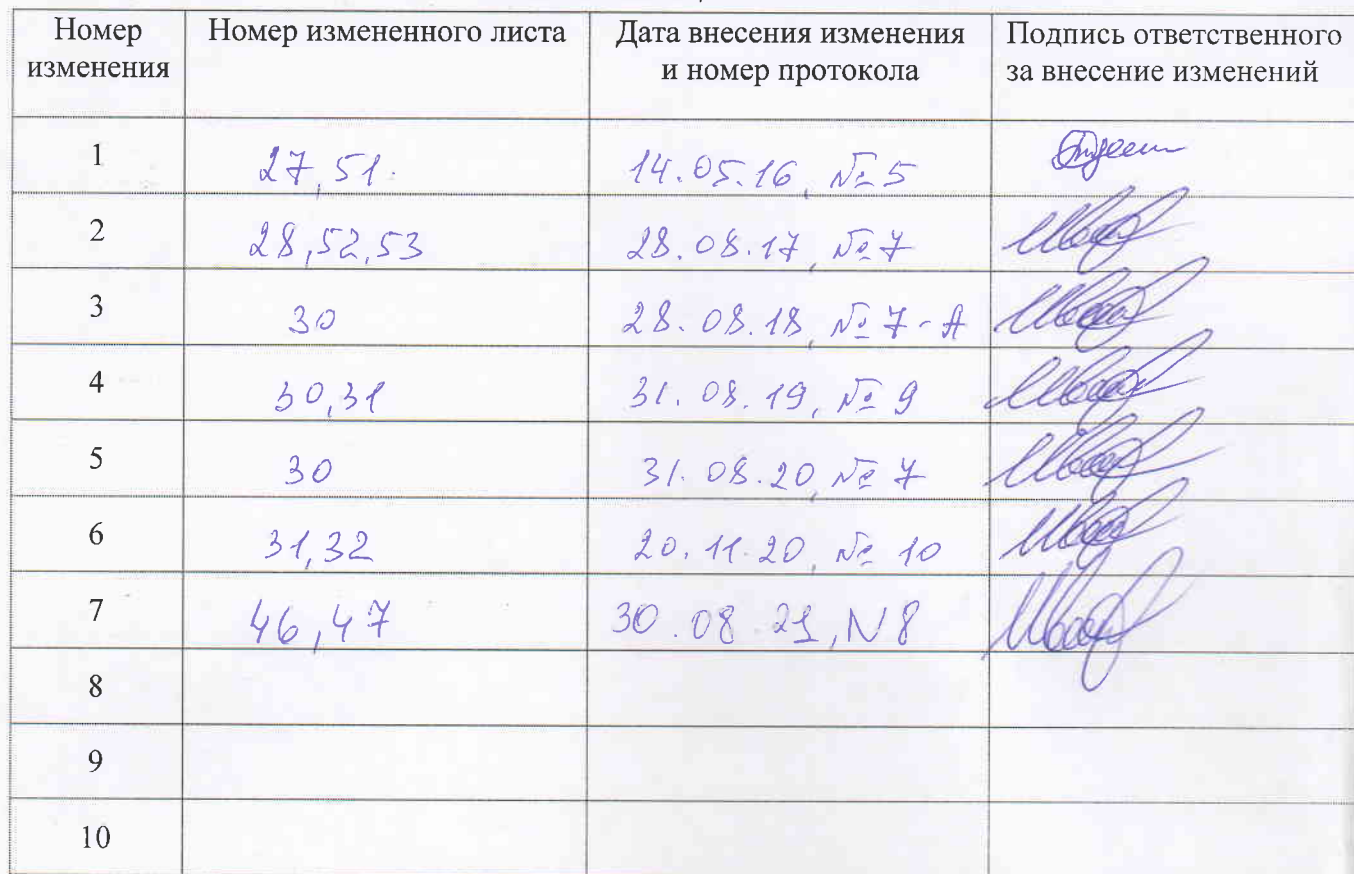 Номер изменения Номер измененного листа Дата внесения изменения и номер протокола Подпись ответственного за внесение изменений
1 27,51. 14.05.16, № 5
2 28,52,53 28.08.17, № 7
3 30 28.08.18, № 7-А
4 30,31 31.08.19, № 9
5 30 31.08.20, № 7
6 31,32 20.11.20, № 10
7 46,47 30.08 21, N 8
8
9
10